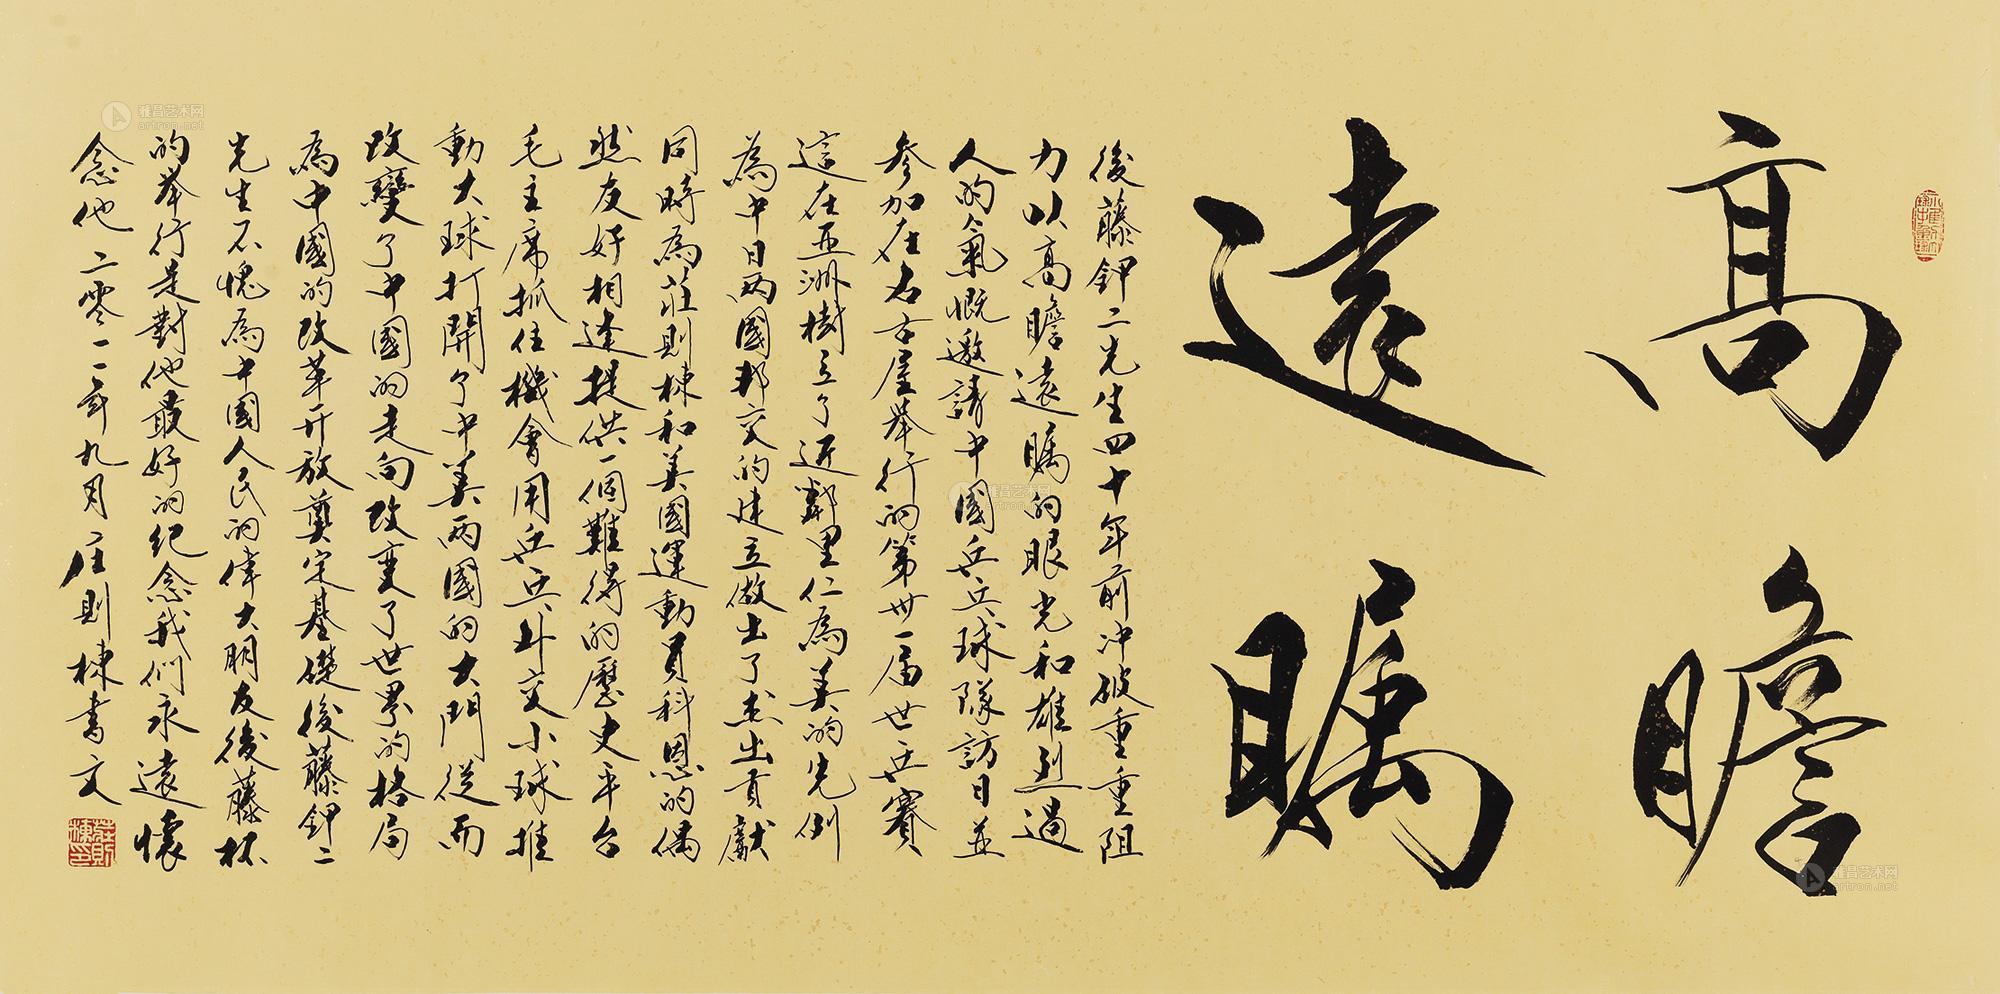 高瞻
遠瞩
後藤鉀二先生四十年前冲破重重阻
力以高瞻遠瞩的眼光和雄烈過
人的氣慨邀請中國乒乓球隊訪日並
参加在名古屋举行的第卅一届世乒賽
這在亚洲樹立了近鄰里仁為美的先例
為中日两國邦交的建立做出了杰出貢獻
同時為莊則棟和美國運動員科恩的偶
然友好相逢提供一個難得的歷史平台
毛主席抓住機會用乒乓外交小球推
動大球打開了中美两國的大門從而
改變了中國的走向改变了世界的格局
為中國的改革开放奠定基礎後藤鉀二
先生不愧為中國人民的偉大朋友後藤杯
的举行是對他最好的纪念我們永遠懷
念他 二零一一年九月 庄則棟書文
莊則棟印
雅昌艺术网
artron.net
雅昌艺术网
artron.net
雅昌艺术网
artron.net